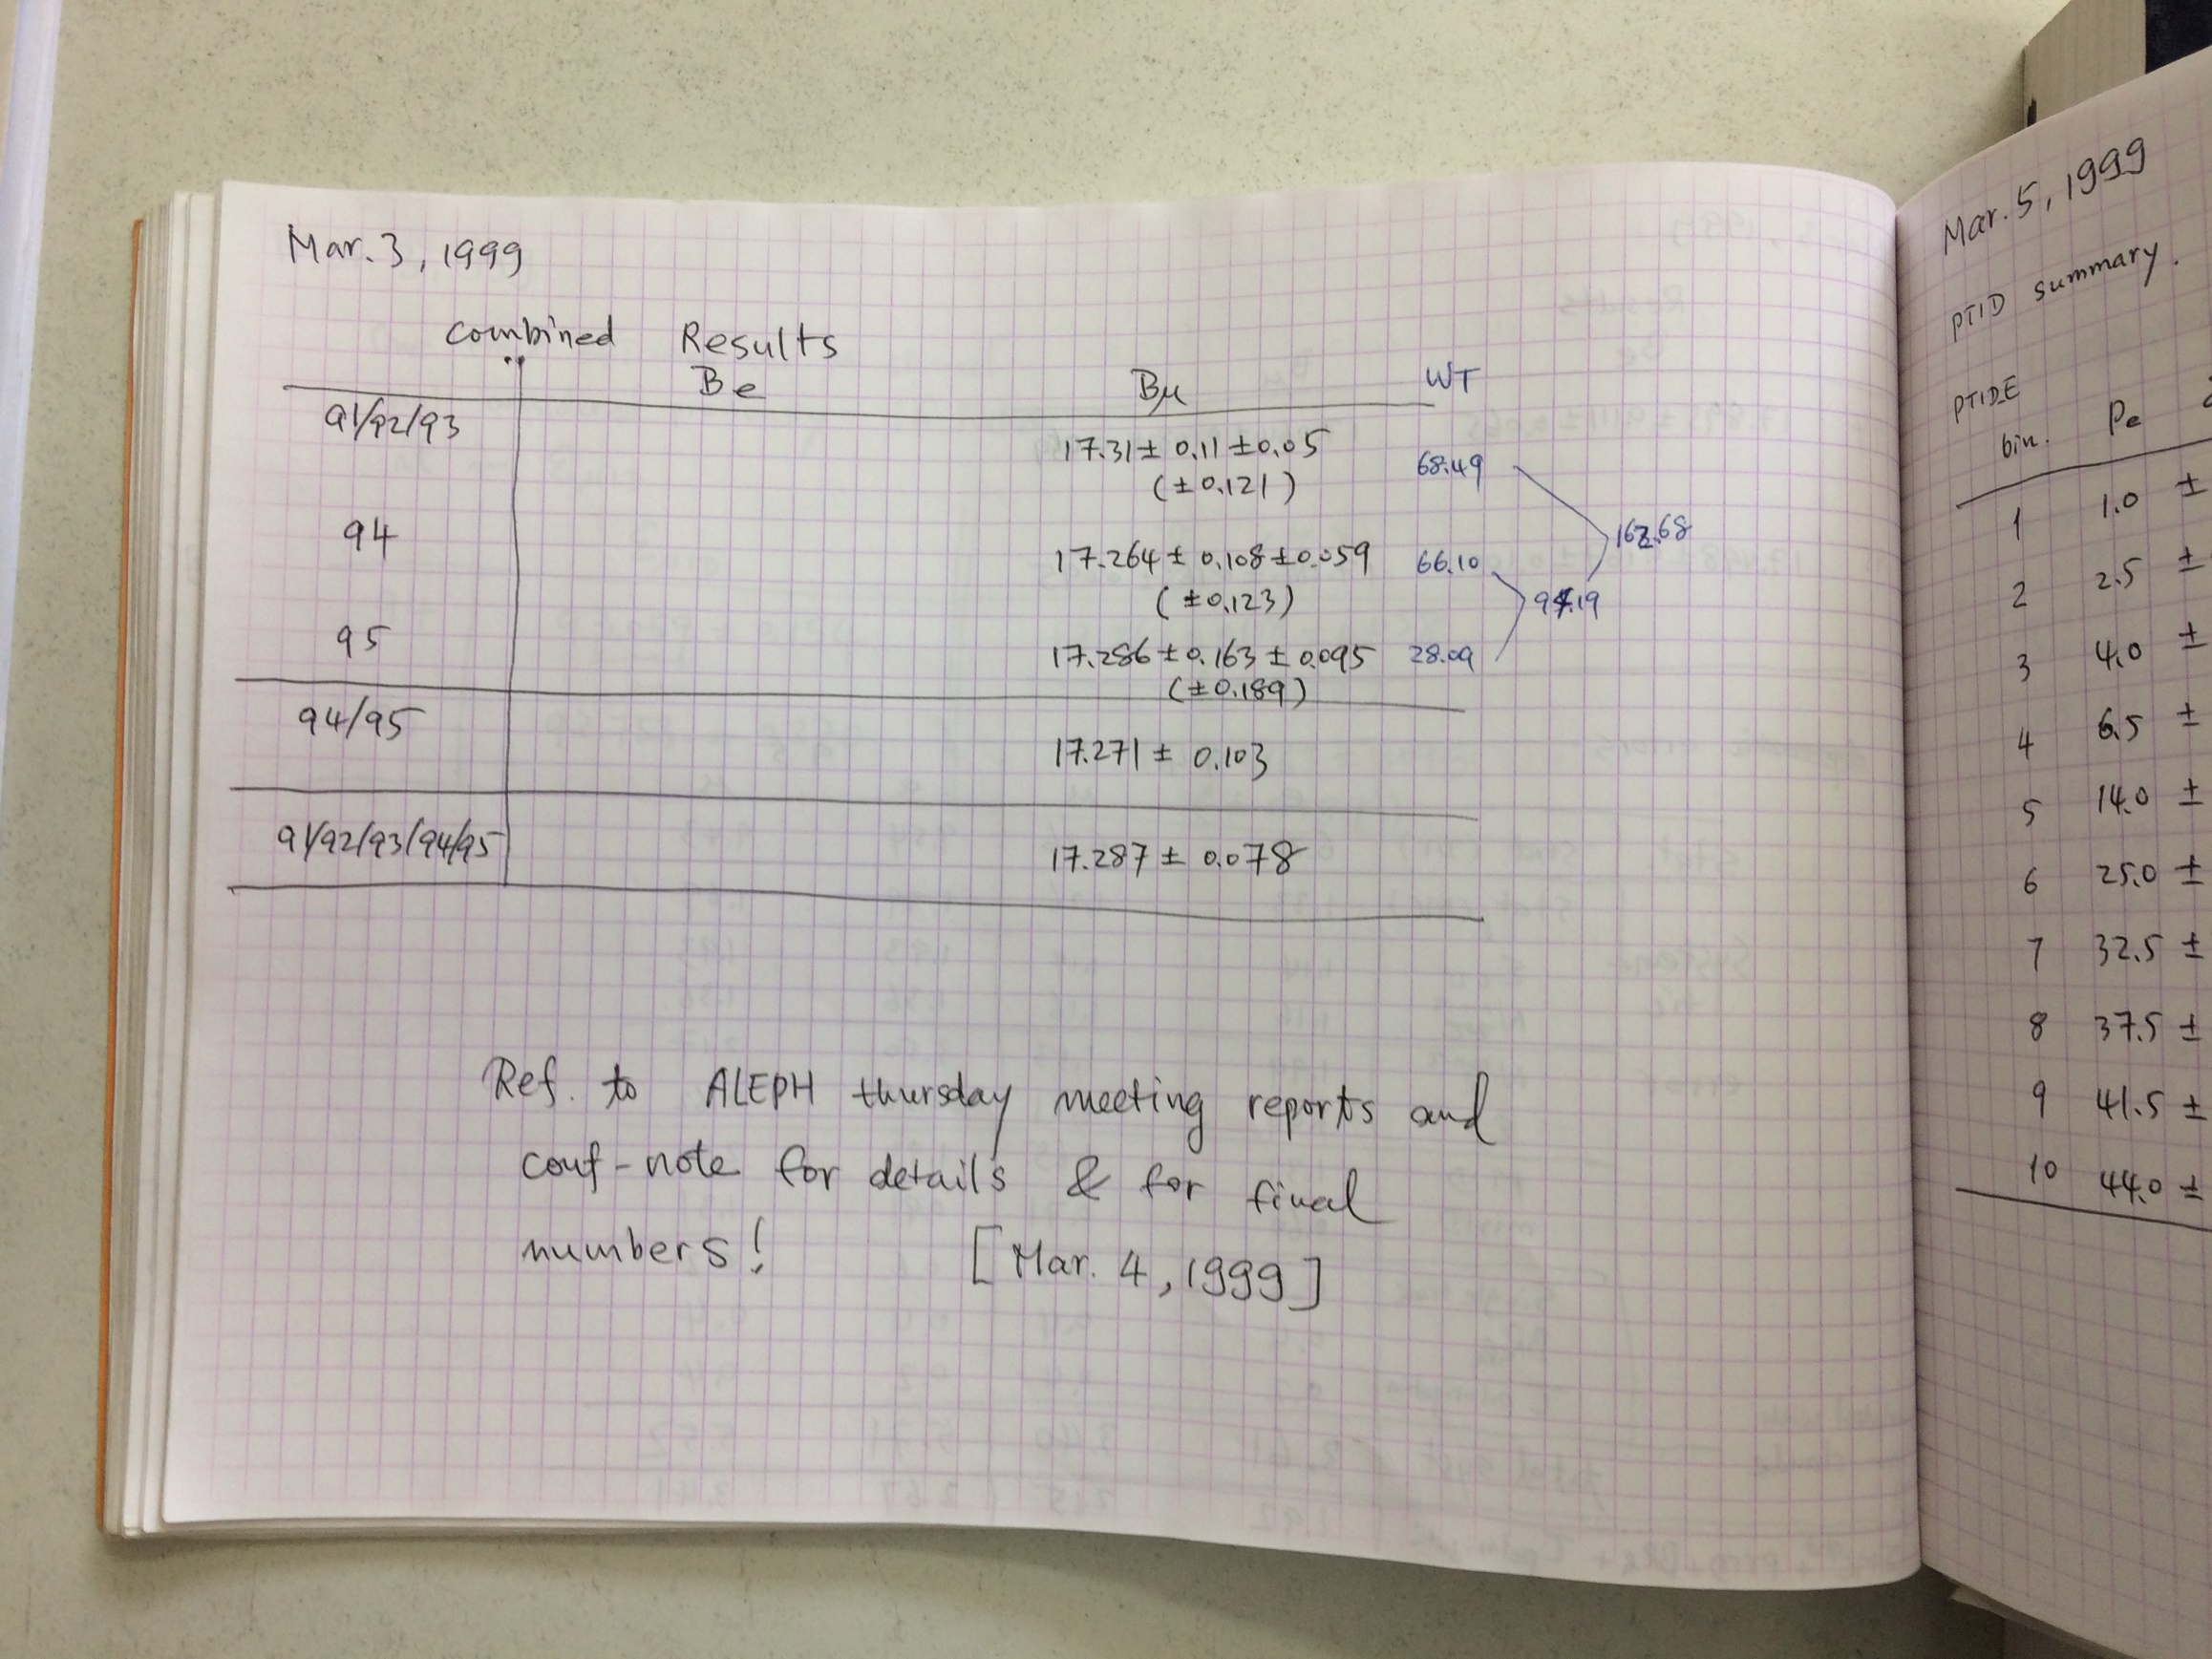 Mar. 3, 1999
Combined Results
Be Bμ WT
91/92/93 17.31 ± 0.11 ± 0.05 68.49
(± 0.121)
162.68
94 17.264 ± 0.108 ± 0.059 66.10
(± 0.123) 94.19
95 17.286 ± 0.163 ± 0.095 28.09
(± 0.189)
94/95 17.271 ± 0.103
91/92/93/94/95 17.287 ± 0.078
Ref. to ALEPH thursday meeting reports and
conf-note for details & for final
numbers! [Mar. 4, 1999]
Mar. 5, 1999
PTID summary.
PTIDE
bin. Pe
1 1.0 ±
2 2.5 ±
3 4.0 ±
4 6.5 ±
5 14.0 ±
6 25.0 ±
7 32.5 ±
8 37.5 ±
9 41.5 ±
10 44.0 ±